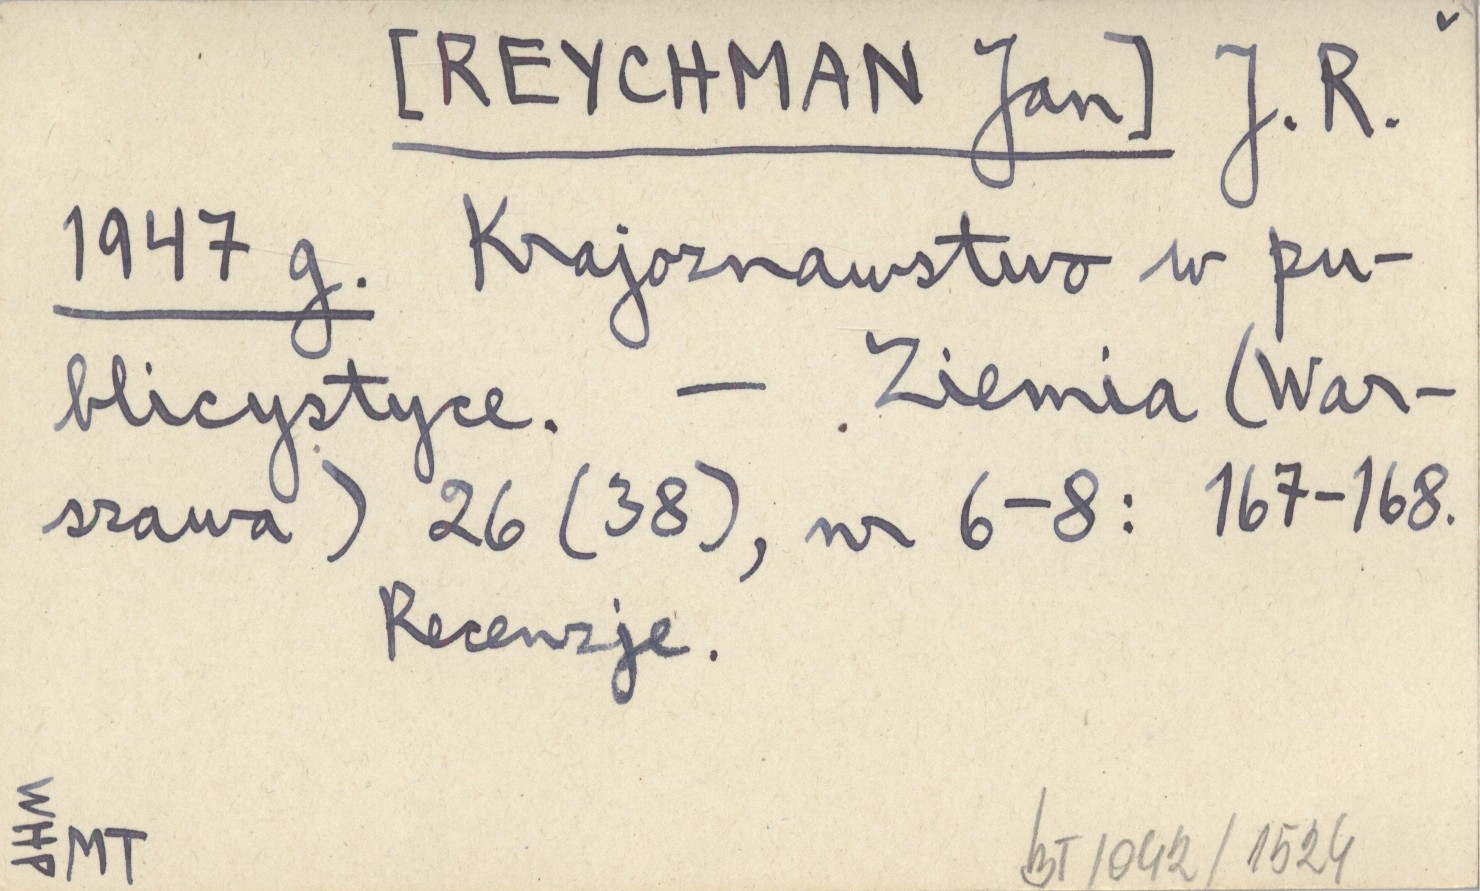 [REYCHMAN Jan] J. R.
1947 g. Krajoznawstwo w pu-
blicystyce. — Ziemia (War-
szawa) 26 (38), nr 6-8: 167-168.
Recenzje.
WHP
MT
BT/042/1524